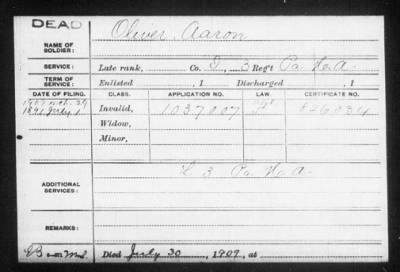 DEAD
NAME OF SOLDIER: Oliver, Aaron
SERVICE: Late rank, Co. I, 3 Reg't Pa. H.A.
TERM OF SERVICE: Enlisted , 1 Discharged , 1
DATE OF FILING. CLASS. APPLICATION NO. LAW. CERTIFICATE NO.
1891 July 1 Invalid, 1037007
Widow,
Minor,
ADDITIONAL SERVICES: L 3 Pa. H.A.
REMARKS:
Died July 30, 1909, at